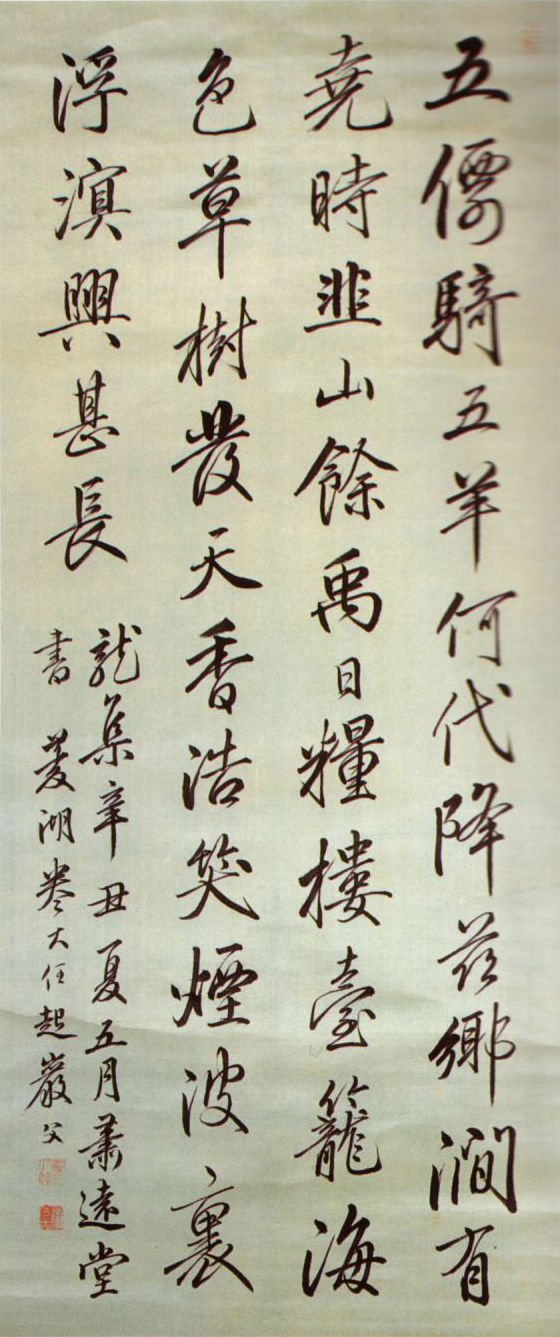 五僊騎五羊何代降茲鄉澗有
堯時韭山餘禹日糧樓臺籠海
色草樹發天香浩笑煙波裏
浮溟興甚長
龍集辛丑夏五月蕭遠堂
書 菱湖卷大任起巖父